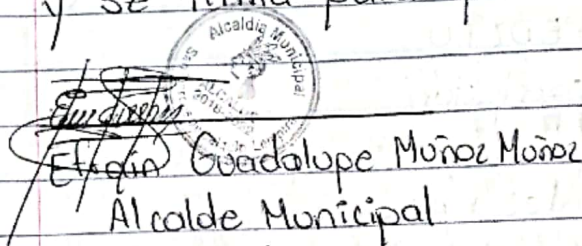 y se firma
Alcaldía Municipal
Efraín Guadalupe Muñoz Muñoz
Alcalde Municipal